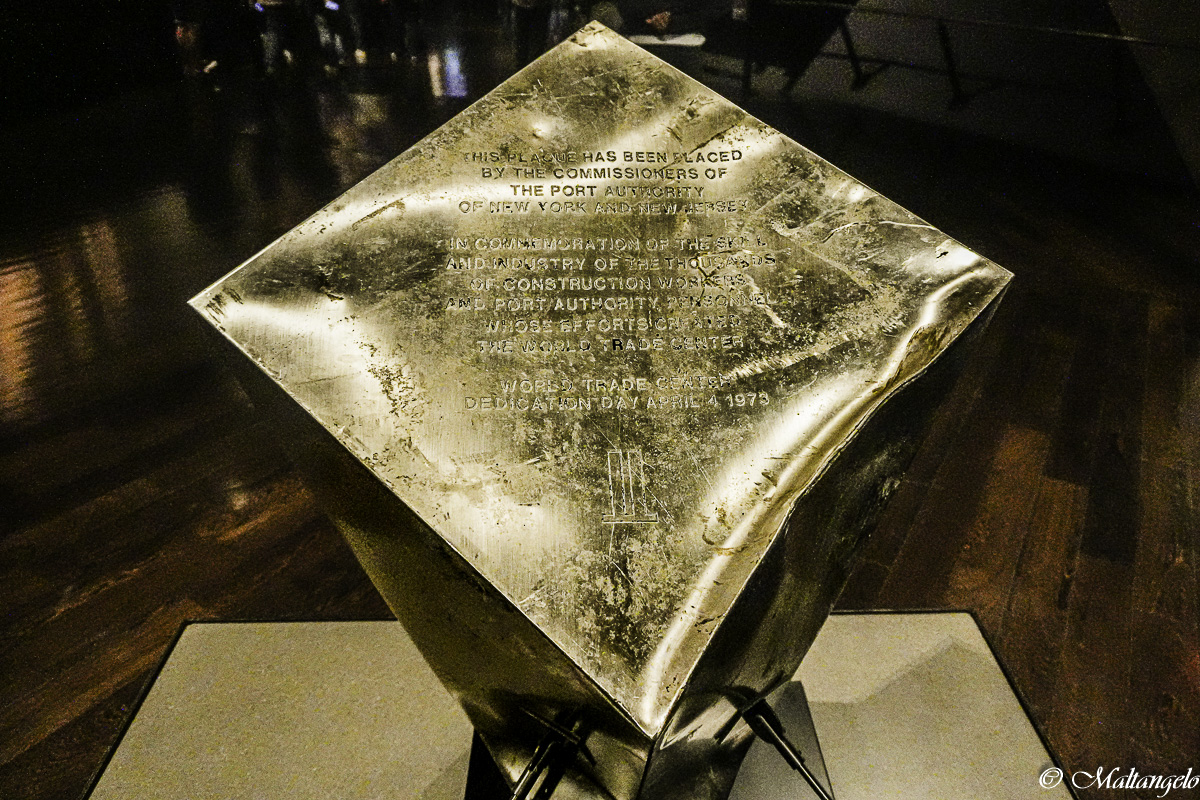 THIS PLAQUE HAS BEEN PLACED
BY THE COMMISSIONERS OF
THE PORT AUTHORITY
OF NEW YORK AND NEW JERSEY
IN COMMEMORATION OF THE SKILL
AND INDUSTRY OF THE THOUSANDS
OF CONSTRUCTION WORKERS
AND PORT AUTHORITY PERSONNEL
WHOSE EFFORTS CREATED
THE WORLD TRADE CENTER
WORLD TRADE CENTER
DEDICATION DAY APRIL 4 1973
© Maltangelo